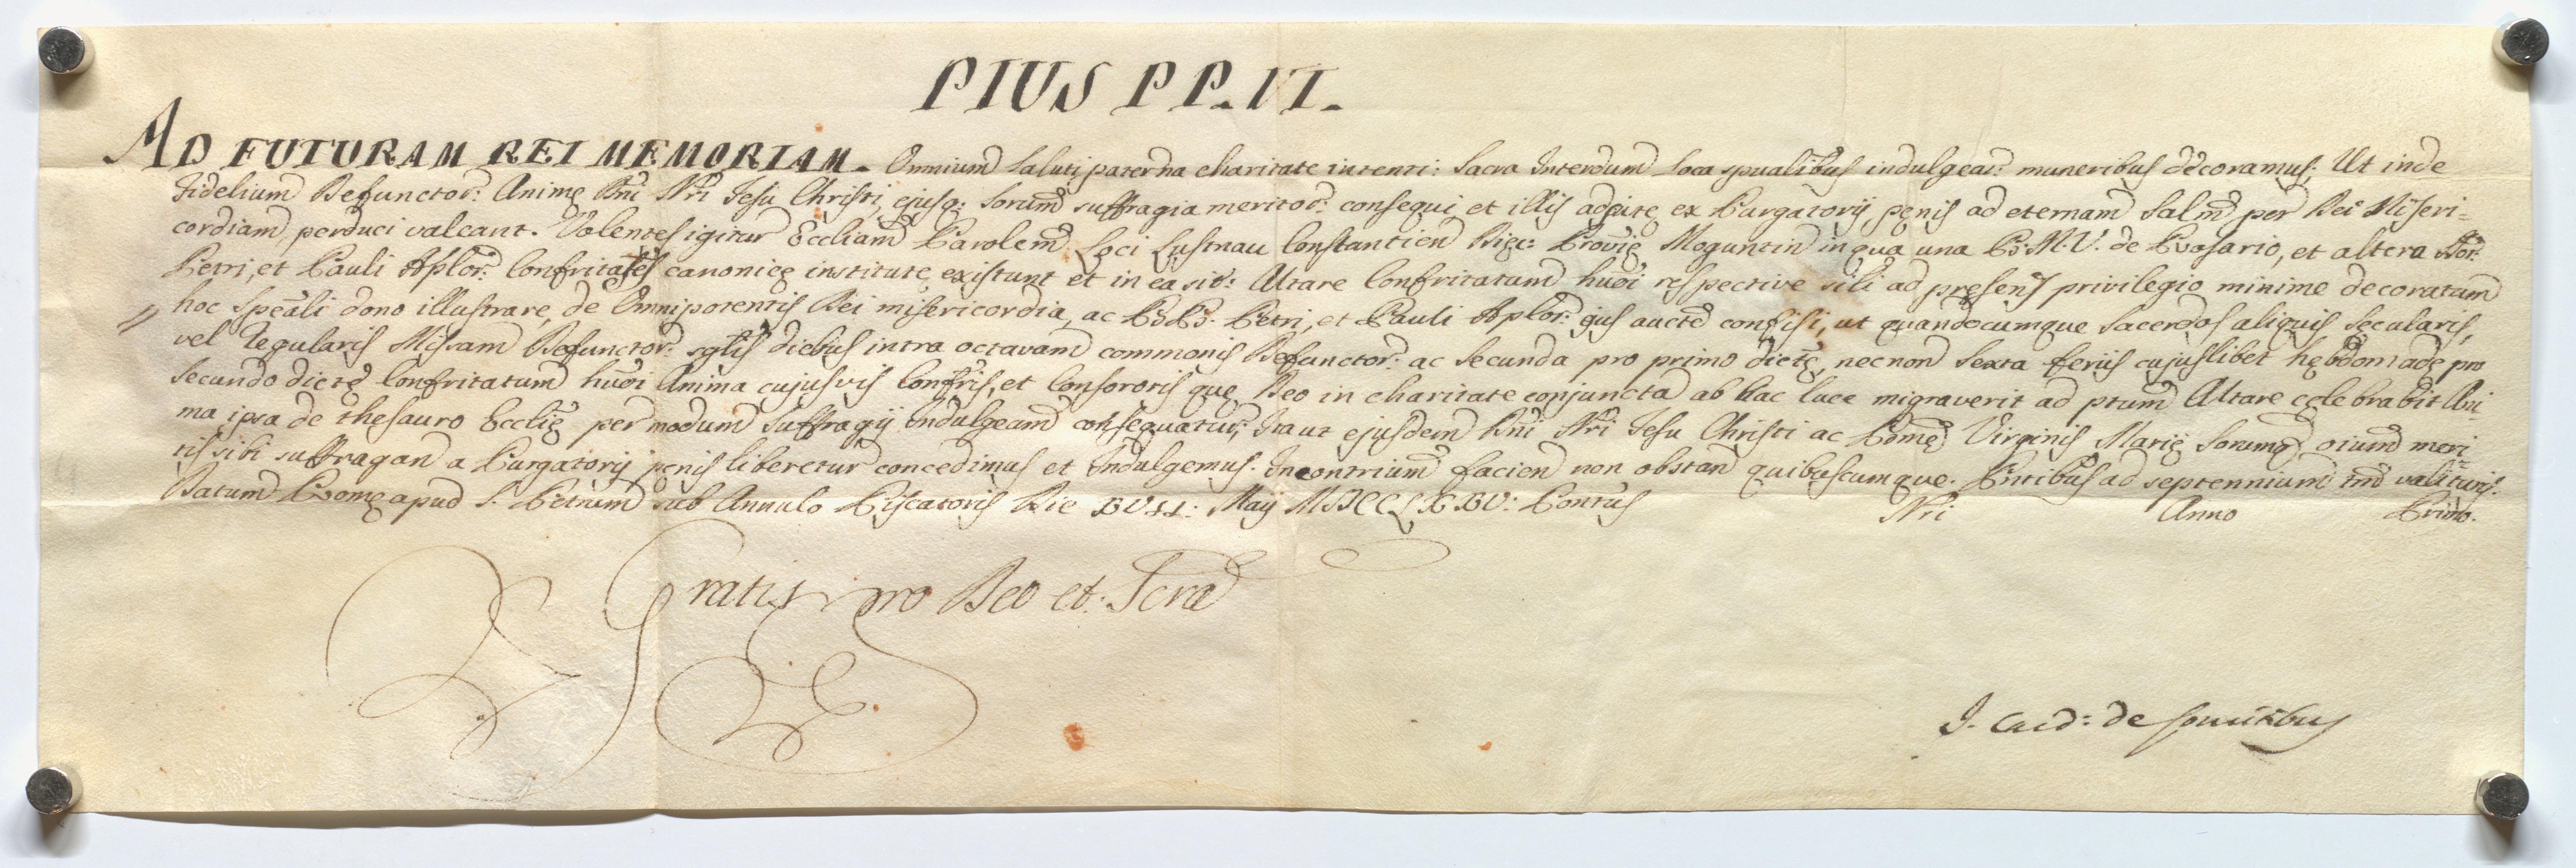 PIUS PP. VI.
AD FUTURAM REI MEMORIAM. Omnium Saluti paterna charitate intenti: Sacra Interdum Loca spualibus indulgear: muneribus decoramus; Ut inde
Fidelium Defunctor: Animę Dni Nri Jesu Christi, ejusq: Sorum suffragia meritor: consequi et illis adjute ex Purgatorij pęnis ad eternam Salm per Dei Miseri=
cordiam perduci valeant. Volentes igitur Eccliam Parolem Loci Lustnau Constantien Dięc: Provię Moguntin in qua una B. M. V. de Rosario, et altera SSor:
Petri, et Pauli Aplor: Confritates canonicę institute existunt et in ea sit: Altare Confritatum huoi respective sili ad presens privilegio minime decoratum
hoc speali dono illustrare, de Omnipotentis Dei misericordia, ac BB. Petri, et Pauli Aplor: ejus aucte confisi, ut quandocumque Sacerdos aliquis Secularis,
vel Regularis Missam Defunctor: sglis diebus intra octavam commonis Defunctor: ac Secunda pro primo dictę, necnon Sexta feriis cujuslibet hębdomadę pro
secundo dicte Confritatum huoi Anima cujusvis Confris, et Consororis quę Deo in charitate conjuncta ab hac luce migraverit ad ptum Altare cęlebrabit Ani
ma ipsa de thesauro Ecclię per modum Suffragij Indulgeam consequatur; Ita ut ejusdem Dni Nri Jesu Christi ac Bme Virginis Marię Sorumq oium meri
tis sibi suffragan a Purgatorij pęnis liberetur concedimus et Indulgemus. In contrium facien non obstan quibuscumque. Pntibus ad septennium tm valituris.
Datum Romę apud S. Petrum sub Annulo Piscatoris Die XVII: Maij MDCCLXXV: Pontus Nri Anno Primo.
Gratis pro Deo et Scra
J. Card: de Comitibus